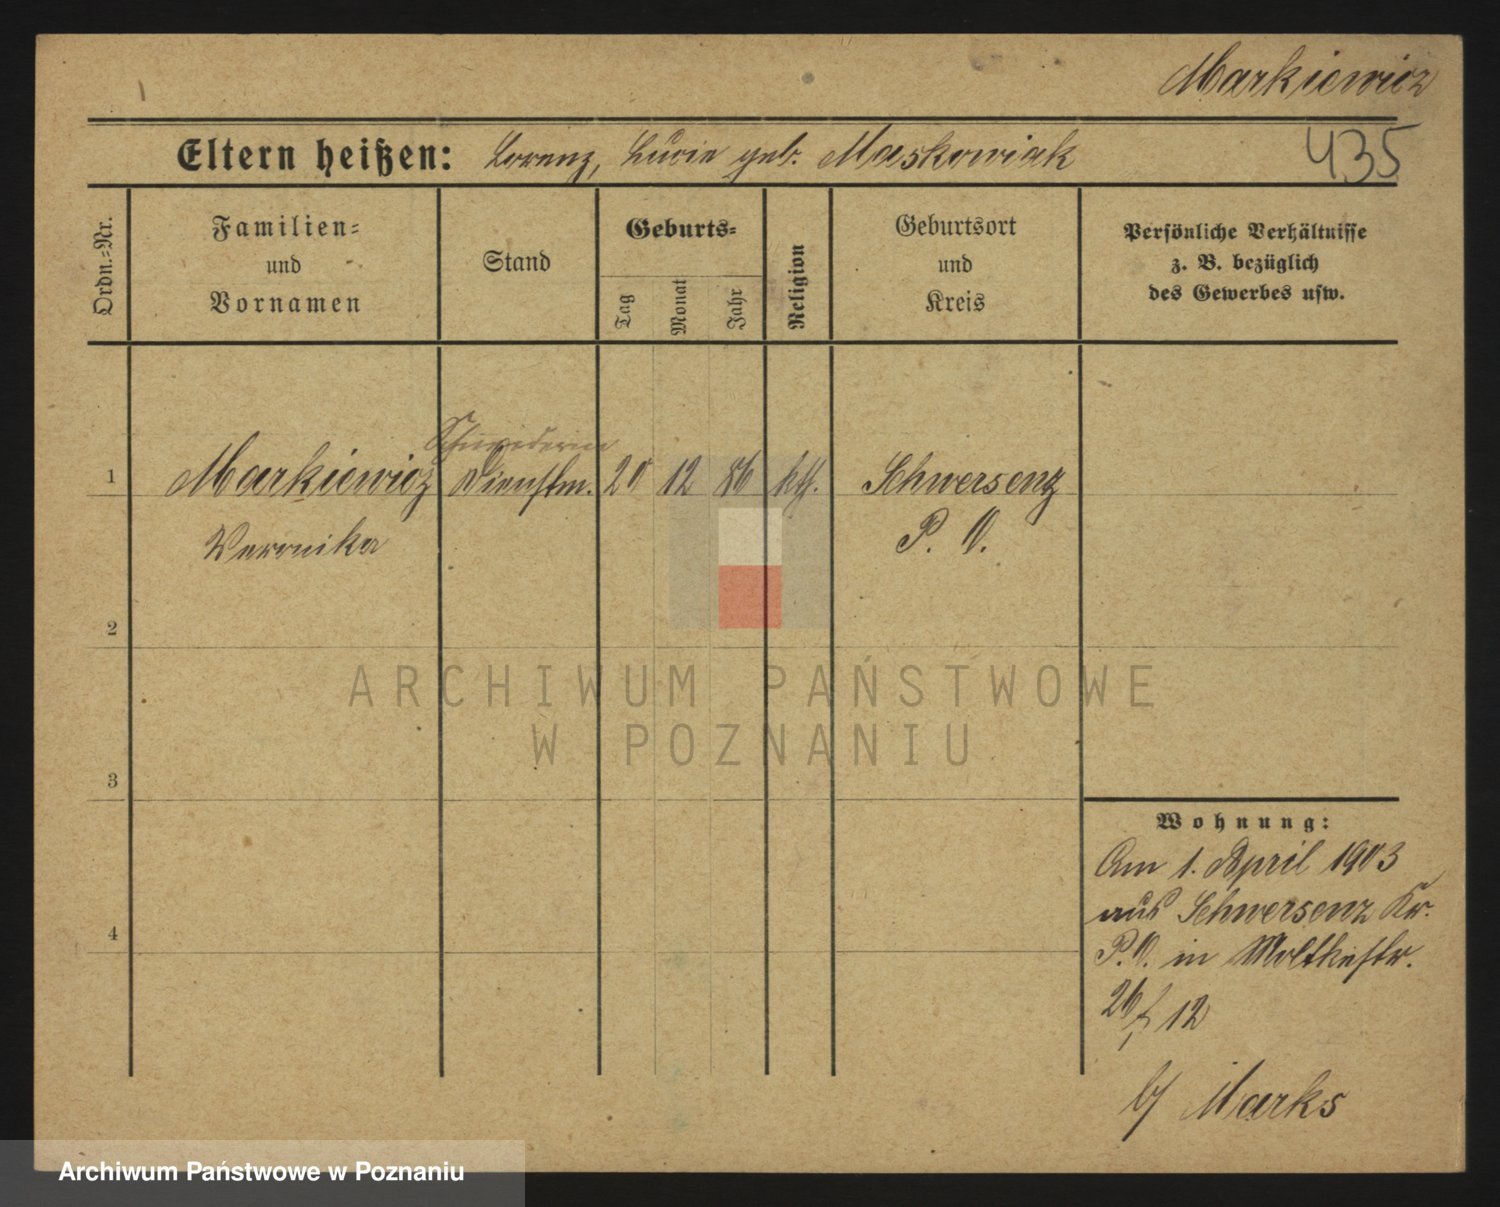 Markiewicz
Eltern heißen: Lorenz, Lucie geb. Maskowiak
435
Ordn.-Nr.
Familien-
und
Vornamen
Stand
Geburts-
Tag
Monat
Jahr
Religion
Geburtsort
und
Kreis
Persönliche Verhältnisse
z. B. bezüglich
des Gewerbes usw.
Schneiderin
1 Markiewicz Dienstm. 20 12 86 kth. Schwersenz
Veronika P. O.
2
ARCHIWUM PAŃSTWOWE
W POZNANIU
3
Wohnung:
Am 1. April 1903
aus Schwersenz Kr.
4
P. O. in Moltkestr.
12
b/ Marks
Archiwum Państwowe w Poznaniu